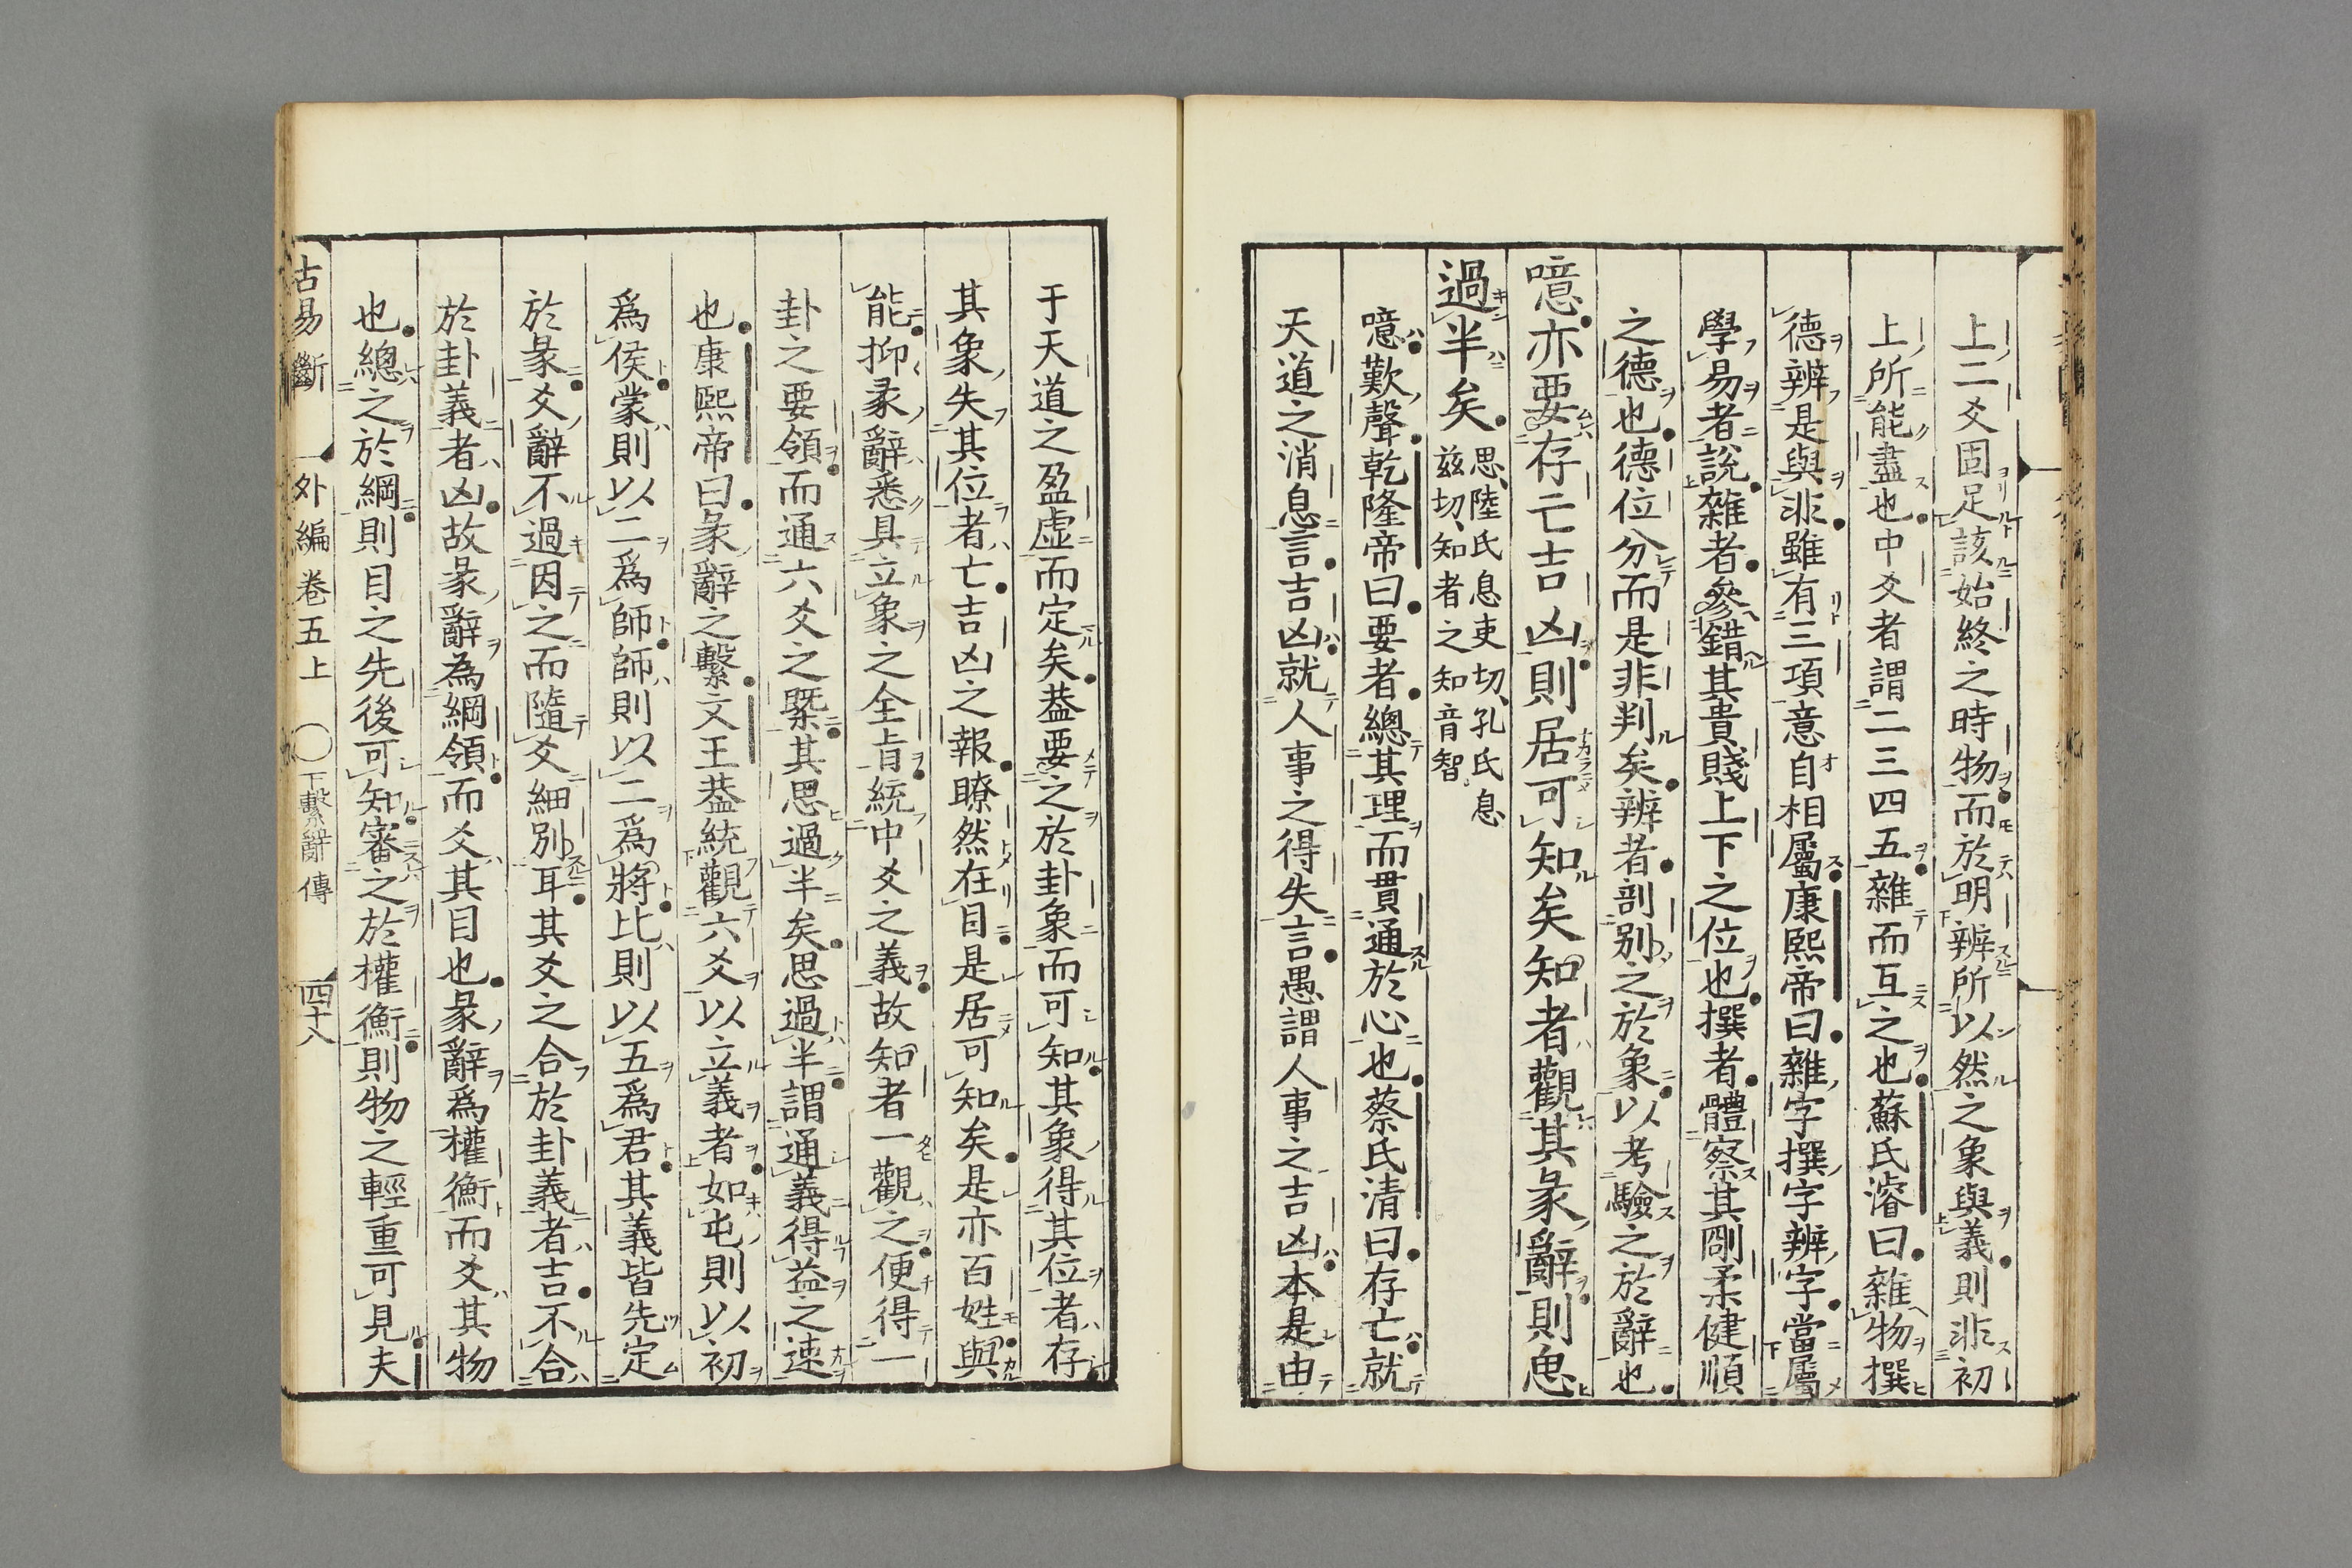 上二爻固足該始終之時物而於明辨所以然之象與義則非初
上所能盡也中爻者謂二三四五雜而互之也蘇氏濬曰雜物撰
德辨是與非雖有三項意自相屬康熙帝曰雜字撰字辨字當屬
學易者說雜者參錯其貴賤上下之位也撰者體察其剛柔健順
之德也德位分而是非判矣辨者剖別之於象以考驗之於辭也
噫亦要存亡吉凶則居可知矣知者觀其彖辭則思
過半矣思陸氏息吏切孔氏息
茲切知者之知音智
噫歎聲乾隆帝曰要者總其理而貫通於心也蔡氏清曰存亡就
天道之消息言吉凶就人事之得失言愚謂人事之吉凶本是由
于天道之盈虛而定矣葢要之於卦象而可知其象得其位者存
其象失其位者亡吉凶之報瞭然在目是居可知矣是亦百姓與
能抑彖辭悉具立象之全㫖統中爻之義故知者一觀之便得一
卦之要領而通六爻之槩其思過半矣思過半謂通義得益之速
也康熙帝曰彖辭之繫文王葢統觀六爻以立義者如屯則以初
爲侯蒙則以二爲師師則以二爲將比則以五爲君其義皆先定
於彖爻辭不過因之而隨爻細別耳其爻之合於卦義者吉不合
於卦義者凶故彖辭為綱領而爻其目也彖辭爲權衡而爻其物
也總之於綱則目之先後可知審之於權衡則物之輕重可見夫
古易斷 外編卷五上 ○下繫辭傳 四十八